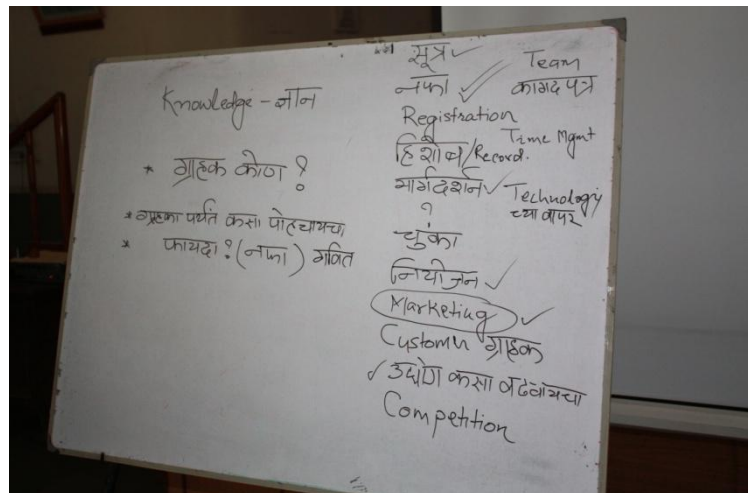 Knowledge - ज्ञान
* ग्राहक कोण ?
* ग्राहका पर्यंत कसा पोहचायचा
* फायदा ? (नफा) गणित
सूत्र ✓
नफा ✓
Registration
हिशोब / Record.
मार्गदर्शन ✓
?
चुंका
नियोजन ✓
Marketing ✓
Customer ग्राहक
✓ उद्योग कसा वाढवायचा
Competition
Team
कागदपत्र
Time Mgmt
Technology
च्या वापर